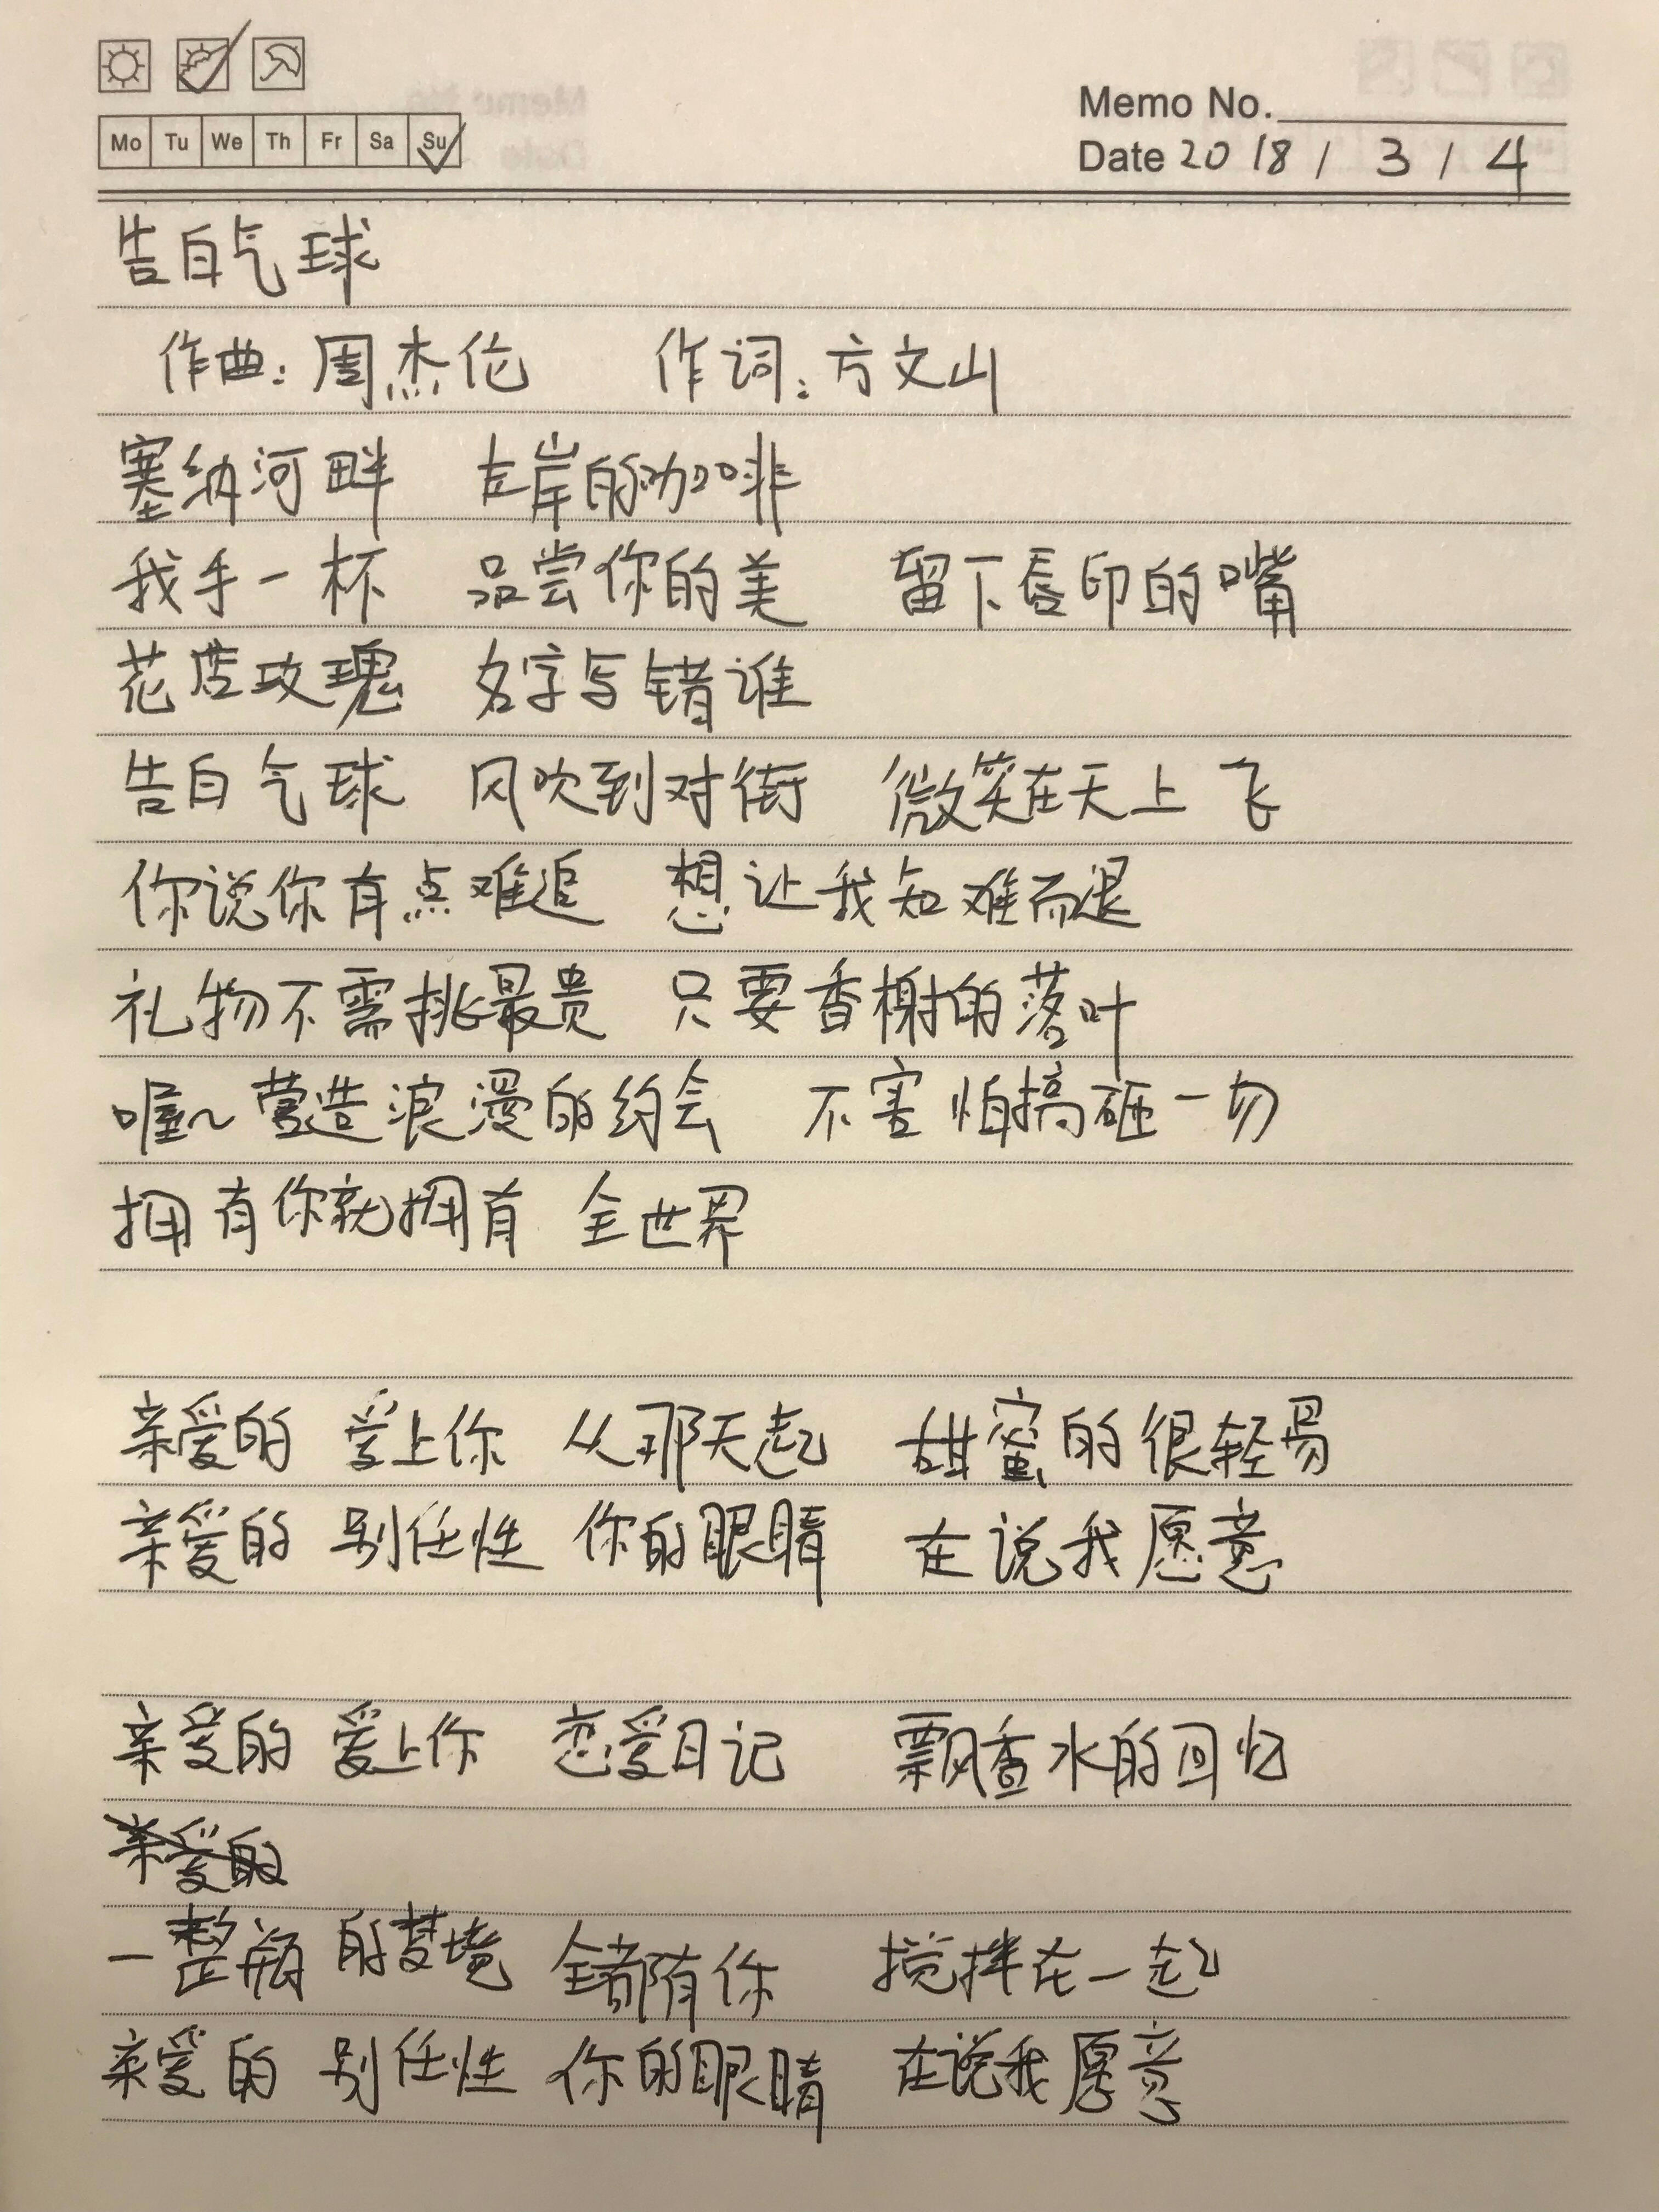 Mo Tu We Th Fr Sa Su
Memo No.
Date 2018 / 3 / 4
告白气球
作曲：周杰伦 作词：方文山
塞纳河畔 左岸的咖啡
我手一杯 品尝你的美 留下唇印的嘴
花店玫瑰 名字写错谁
告白气球 风吹到对街 微笑在天上飞
你说你有点难追 想让我知难而退
礼物不需挑最贵 只要香榭的落叶
喔~营造浪漫的约会 不害怕搞砸一切
拥有你就拥有 全世界
亲爱的 爱上你 从那天起 甜蜜的很轻易
亲爱的 别任性 你的眼睛 在说我愿意
亲爱的 爱上你 恋爱日记 飘香水的回忆
亲爱的
一整瓶 的梦境 全都有你 搅拌在一起
亲爱的 别任性 你的眼睛 在说我愿意